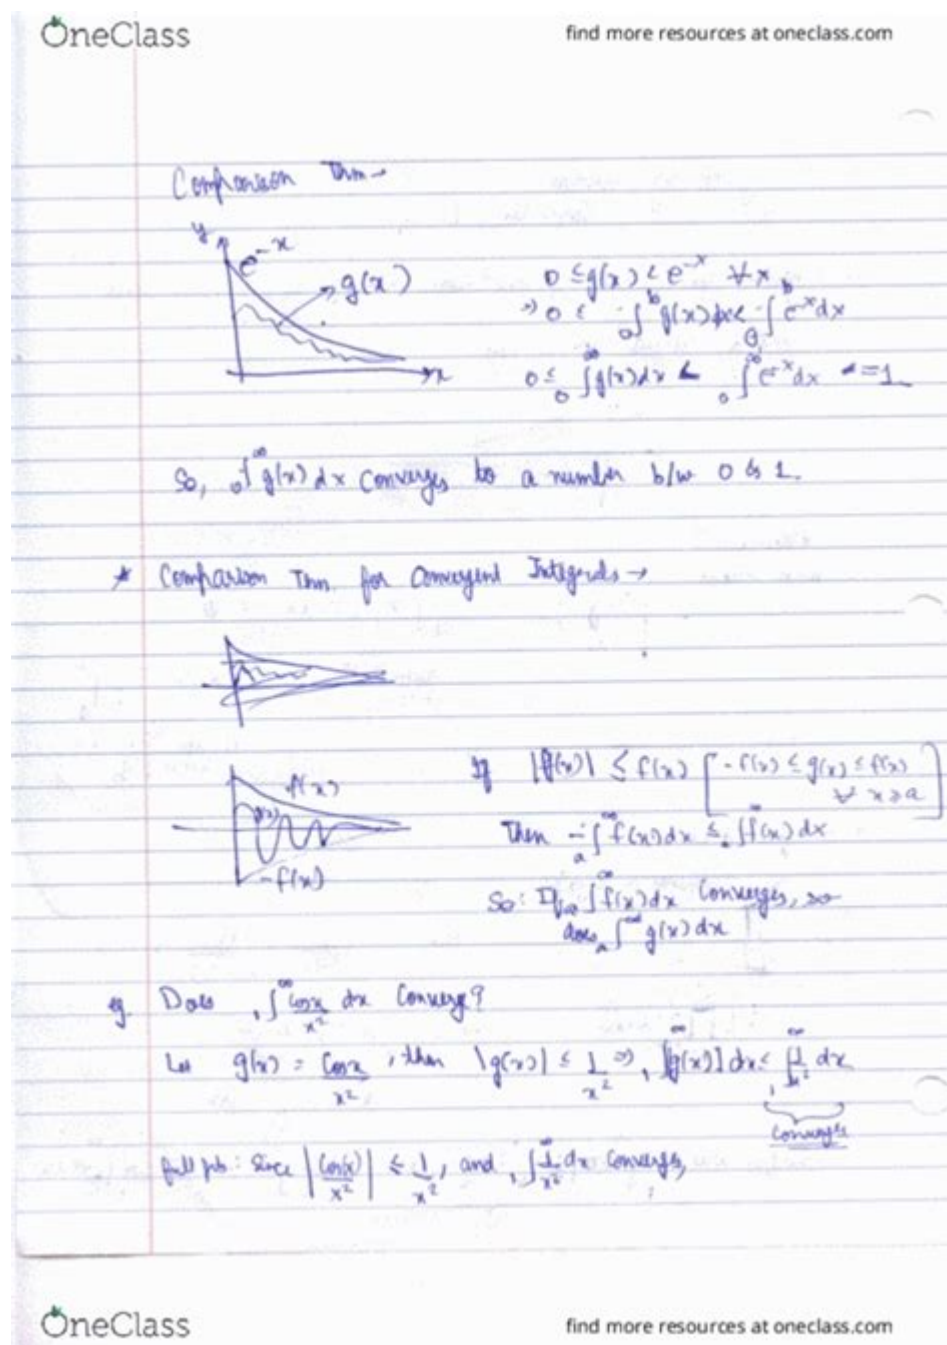 OneClass
find more resources at oneclass.com
Comparison Thm→
y
e^-x
g(x)
x
0 ≤ g(x) < e^-x ∀ x
⇒ 0 ≤ 0∫^b g(x) dx < 0∫^b e^-x dx
0 ≤ 0∫^∞ g(x) dx < 0∫^∞ e^-x dx = 1
So, 0∫^∞ g(x) dx converges to a number b/w 0 & 1.
* Comparison Thm for Convergent Integrals →
f(x)
g(x)
-f(x)
If |g(x)| ≤ f(x) [-f(x) ≤ g(x) ≤ f(x)
∀ x ≥ a]
Then -a∫^∞ f(x) dx ≤ ∫f(x) dx
So: If a∫^∞ f(x) dx Converges, so
does a∫^∞ g(x) dx
eg. Does 1∫^∞ cosx/x² dx Converge?
Let g(x) = Cosx/x², then |g(x)| ≤ 1/x² ⇒ 1∫^∞ |g(x)| dx ≤ 1∫^∞ 1/x² dx
Converges
since |Cos(x)/x²| ≤ 1/x², and 1∫^∞ 1/x² dx converges,
OneClass
find more resources at oneclass.com